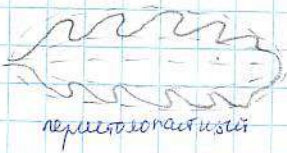 перистолопастный